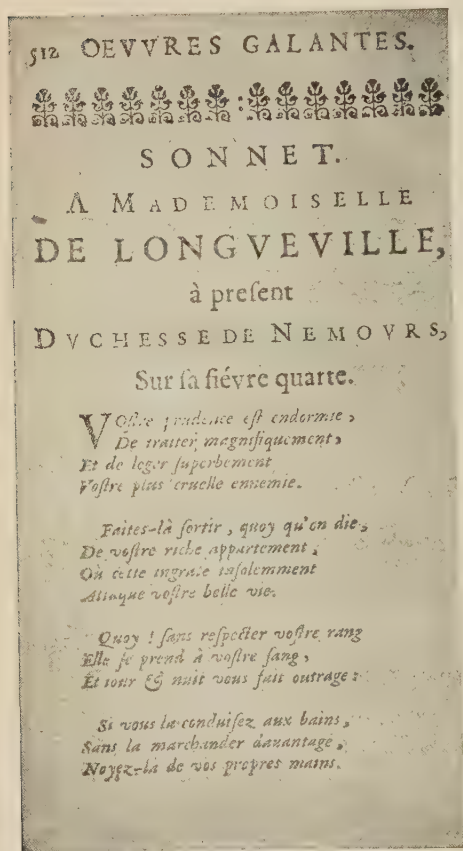 512 OEVVRES GALANTES.
SONNET.
A MADEMOISELLE
DE LONGVEVILLE,
à preſent
DVCHESSE DE NEMOVRS,
Sur ſa fiévre quarte.
VOſtre prudence eſt endormie,
De traiter magnifiquement,
Et de loger ſuperbement
Voſtre plus cruelle ennemie.
Faites-là ſortir, quoy qu'on die,
De voſtre riche appartement,
Où cette ingrate inſolemment
Attaque voſtre belle vie.
Quoy ! ſans reſpecter voſtre rang
Elle ſe prend à voſtre ſang,
Et iour & nuit vous fait outrage :
Si vous la conduiſez aux bains,
Sans la marchander dauantage,
Noyez-là de vos propres mains.